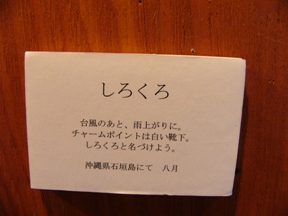 しろくろ
台風のあと、雨上がりに。
チャームポイントは白い靴下。
しろくろと名づけよう。
沖縄県石垣島にて　八月